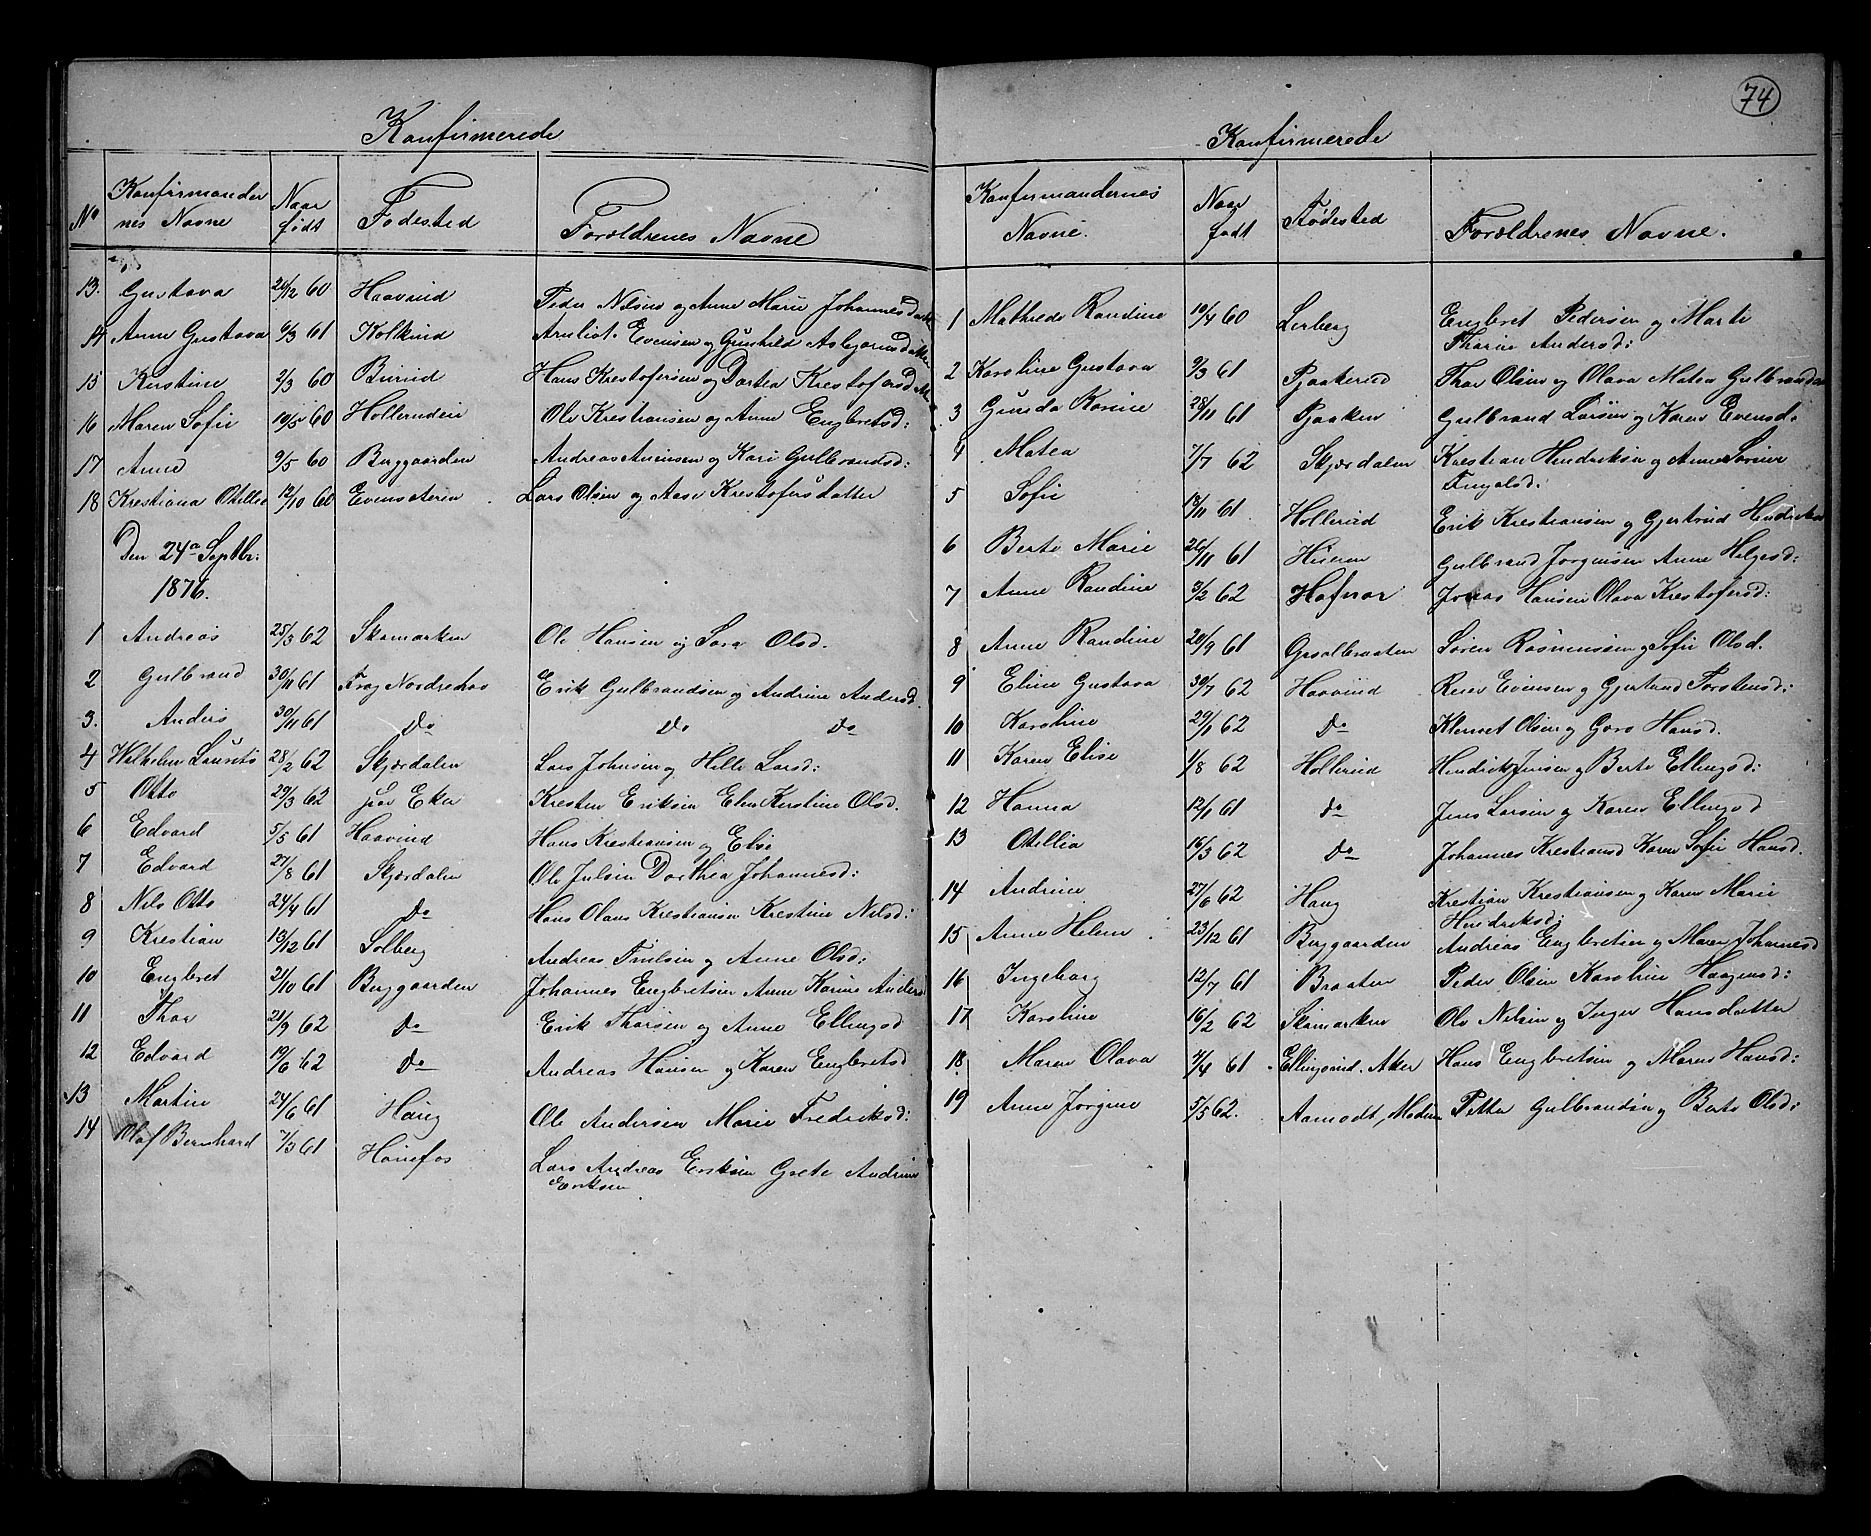 Konfirmerede
No Konfirmandernes Navne Naar født Fødested Forældrenes Navne
13. Gustava 26/12 60 Haavind Peder Nilsen og Anne Marie Johannesdatter
14 Anne Gustava 6/3 61 Kolkind Arnliot Evensen og Gunhild Asbjørnsdatter
15 Kirstine 2/3 60 Burud Hans Krestofersen og Dortea Krestofersdatter
16 Maren Sofie 10/5 60 Hollerudeie Ole Krestiansen og Anne Engbretsd:
17 Anne 9/5 60 Berggaarden Andreas og Kari Gulbrandsd:
18 Krestiana Otillia 12/10 60 Evensæteren Lars Olsen og Aase Krestofersdatter
Den 24de Septbr:
1876.
1 Andreas 25/3 62 Skamarken Ole Hansen og Sara Olsd.
2 Gulbrand 30/11 61 Frog Nordrehov Erik Gulbrandsen og Andrine Andersd.
3. Anders 30/11 61 Do Do Do
4 Wilhelm Laurits 28/2 62 Skjærdalen Lars Johnsen og Helle Larsd:
5 Otto 29/3 62 paa Eka Kresten Eriksen Elen Kirstine Olsd.
6 Edvard 5/5 61 Haavind Hans Krestiansen og Elise
7 Edvard 27/8 61 Skjærdalen Ole Julsen Dorthea Johannesd:
8 Nils Otto 24/4 61 Do Hans Olaus Krestiansen Krestine Nilsd:
9 Krestian 13/12 61 Solberg Andreas Truلsen og Anne Olsd:
10 Engbret 21/10 61 Berggaarden Johannes Engbretsen Anne Karine Andersd
11 Thor 21/9 62 Do Erik Thorsen og Anne Ellingsd
12 Edvard 19/6 62 Do Andreas Hansen og Karen Engbretsd
13 Martin 24/6 61 Haug Ole Andersen Marie Fredriksd:
14 Olaf Bernhard 7/3 61 Hønefos Lars Andreas Eriksen Grete Andrine
Eriksen
74
Konfirmerede
Konfirmandernes Navne. Naar født Fødested Forældrenes Navne.
1 Mathrede Randine 10/4 60 Lerberg Engbret Pedersen og Marte
Tharine Andersd:
2 Karoline Gustava 9/3 61 Pjaakerud Thor Olsen og Olava Matea Gulbrandsd
3 Gunda Karine 28/11 61 Pjaaken Gulbrand Larsen og Karen Evensd.
4 Matea 7/7 62 Skjærdalen Krestian Hendriksen og Anne Sørine
Engelsd:
5 Sofie 18/11 61 Hollerud Erik Krestiansen og Gjertrud Hendriksd
6 Berte Marie 26/11 61 Gulbrand Jørgensen Anne Helgesd:
7 Anne Randine 3/2 62 Hafnor Jonas Hansen Olava Krestofersd:
8 Anne Randine 20/9 61 Gsalbraaten Søren Rasmussen og Sofie Olsd.
9 Eline Gustava 30/7 62 Haavind Reier Evensen og Gjertrud Torstensd:
10 Karoline 29/1 62 Do Klemet Olsen og Goro Hansd.
11 Karen Elise 1/8 62 Hollerud Hendrik Jensen og Berte Ellingsd:
12 Hanna 12/1 61 do Jens Larsen og Karen Ellingsd
13 Otillia 16/3 62 Do Johannes Krestiansd Karen Sofie Hansd.
14 Andrine 27/6 62 Haug Krestian Krestiansen og Karen Marie
Hendriksd:
15 Anne Helene 23/12 61 Berggaarden Andreas Engbretsen og Maren Johannesd
16 Ingeborg 12/7 61 Braaten Peder Olsen Karoline Haagensd:
17 Karoline 16/2 62 Skamarken Ole Nelsen og Inger Hansdatter
18 Maren Olava 4/4 61 Ellingsrud. Aker Hans Engbretsen og Maren Hansd:
19 Anne Jørgine 5/5 62. Aamodt, Modum Petter Gulbrandsen og Berte Olsd: